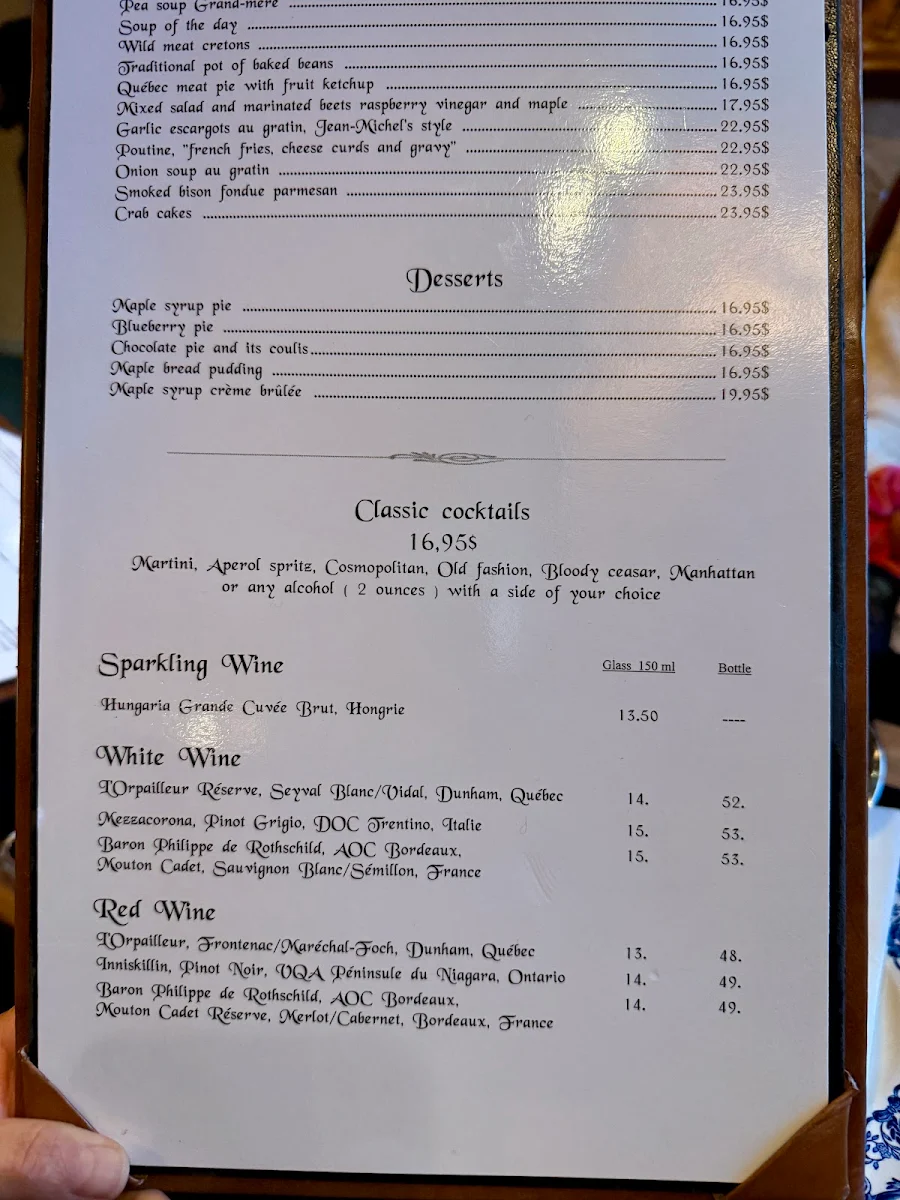 Pea soup Grand-mère ........ 16.95$
Soup of the day ........ 16.95$
Wild meat cretons ........ 16.95$
Traditional pot of baked beans ........ 16.95$
Québec meat pie with fruit ketchup ........ 16.95$
Mixed salad and marinated beets raspberry vinegar and maple ........ 17.95$
Garlic escargots au gratin, Jean-Michel's style ........ 22.95$
Poutine, "french fries, cheese curds and gravy" ........ 22.95$
Onion soup au gratin ........ 22.95$
Smoked bison fondue parmesan ........ 23.95$
Crab cakes ........ 23.95$
Desserts
Maple syrup pie ........ 16.95$
Blueberry pie ........ 16.95$
Chocolate pie and its coulis ........ 16.95$
Maple bread pudding ........ 16.95$
Maple syrup crème brûlée ........ 19.95$
Classic cocktails
16,95$
Martini, Aperol spritz, Cosmopolitan, Old fashion, Bloody ceasar, Manhattan
or any alcohol ( 2 ounces ) with a side of your choice
Sparkling Wine Glass 150 ml Bottle
Hungaria Grande Cuvée Brut, Hongrie 13.50 ----
White Wine
L'Orpailleur Réserve, Seyval Blanc/Vidal, Dunham, Québec 14. 52.
Mezzacorona, Pinot Grigio, DOC Trentino, Italie 15. 53.
Baron Philippe de Rothschild, AOC Bordeaux, 15. 53.
Mouton Cadet, Sauvignon Blanc/Sémillon, France
Red Wine
L'Orpailleur, Frontenac/Maréchal-Foch, Dunham, Québec 13. 48.
Inniskillin, Pinot Noir, VQA Péninsule du Niagara, Ontario 14. 49.
Baron Philippe de Rothschild, AOC Bordeaux, 14. 49.
Mouton Cadet Réserve, Merlot/Cabernet, Bordeaux, France